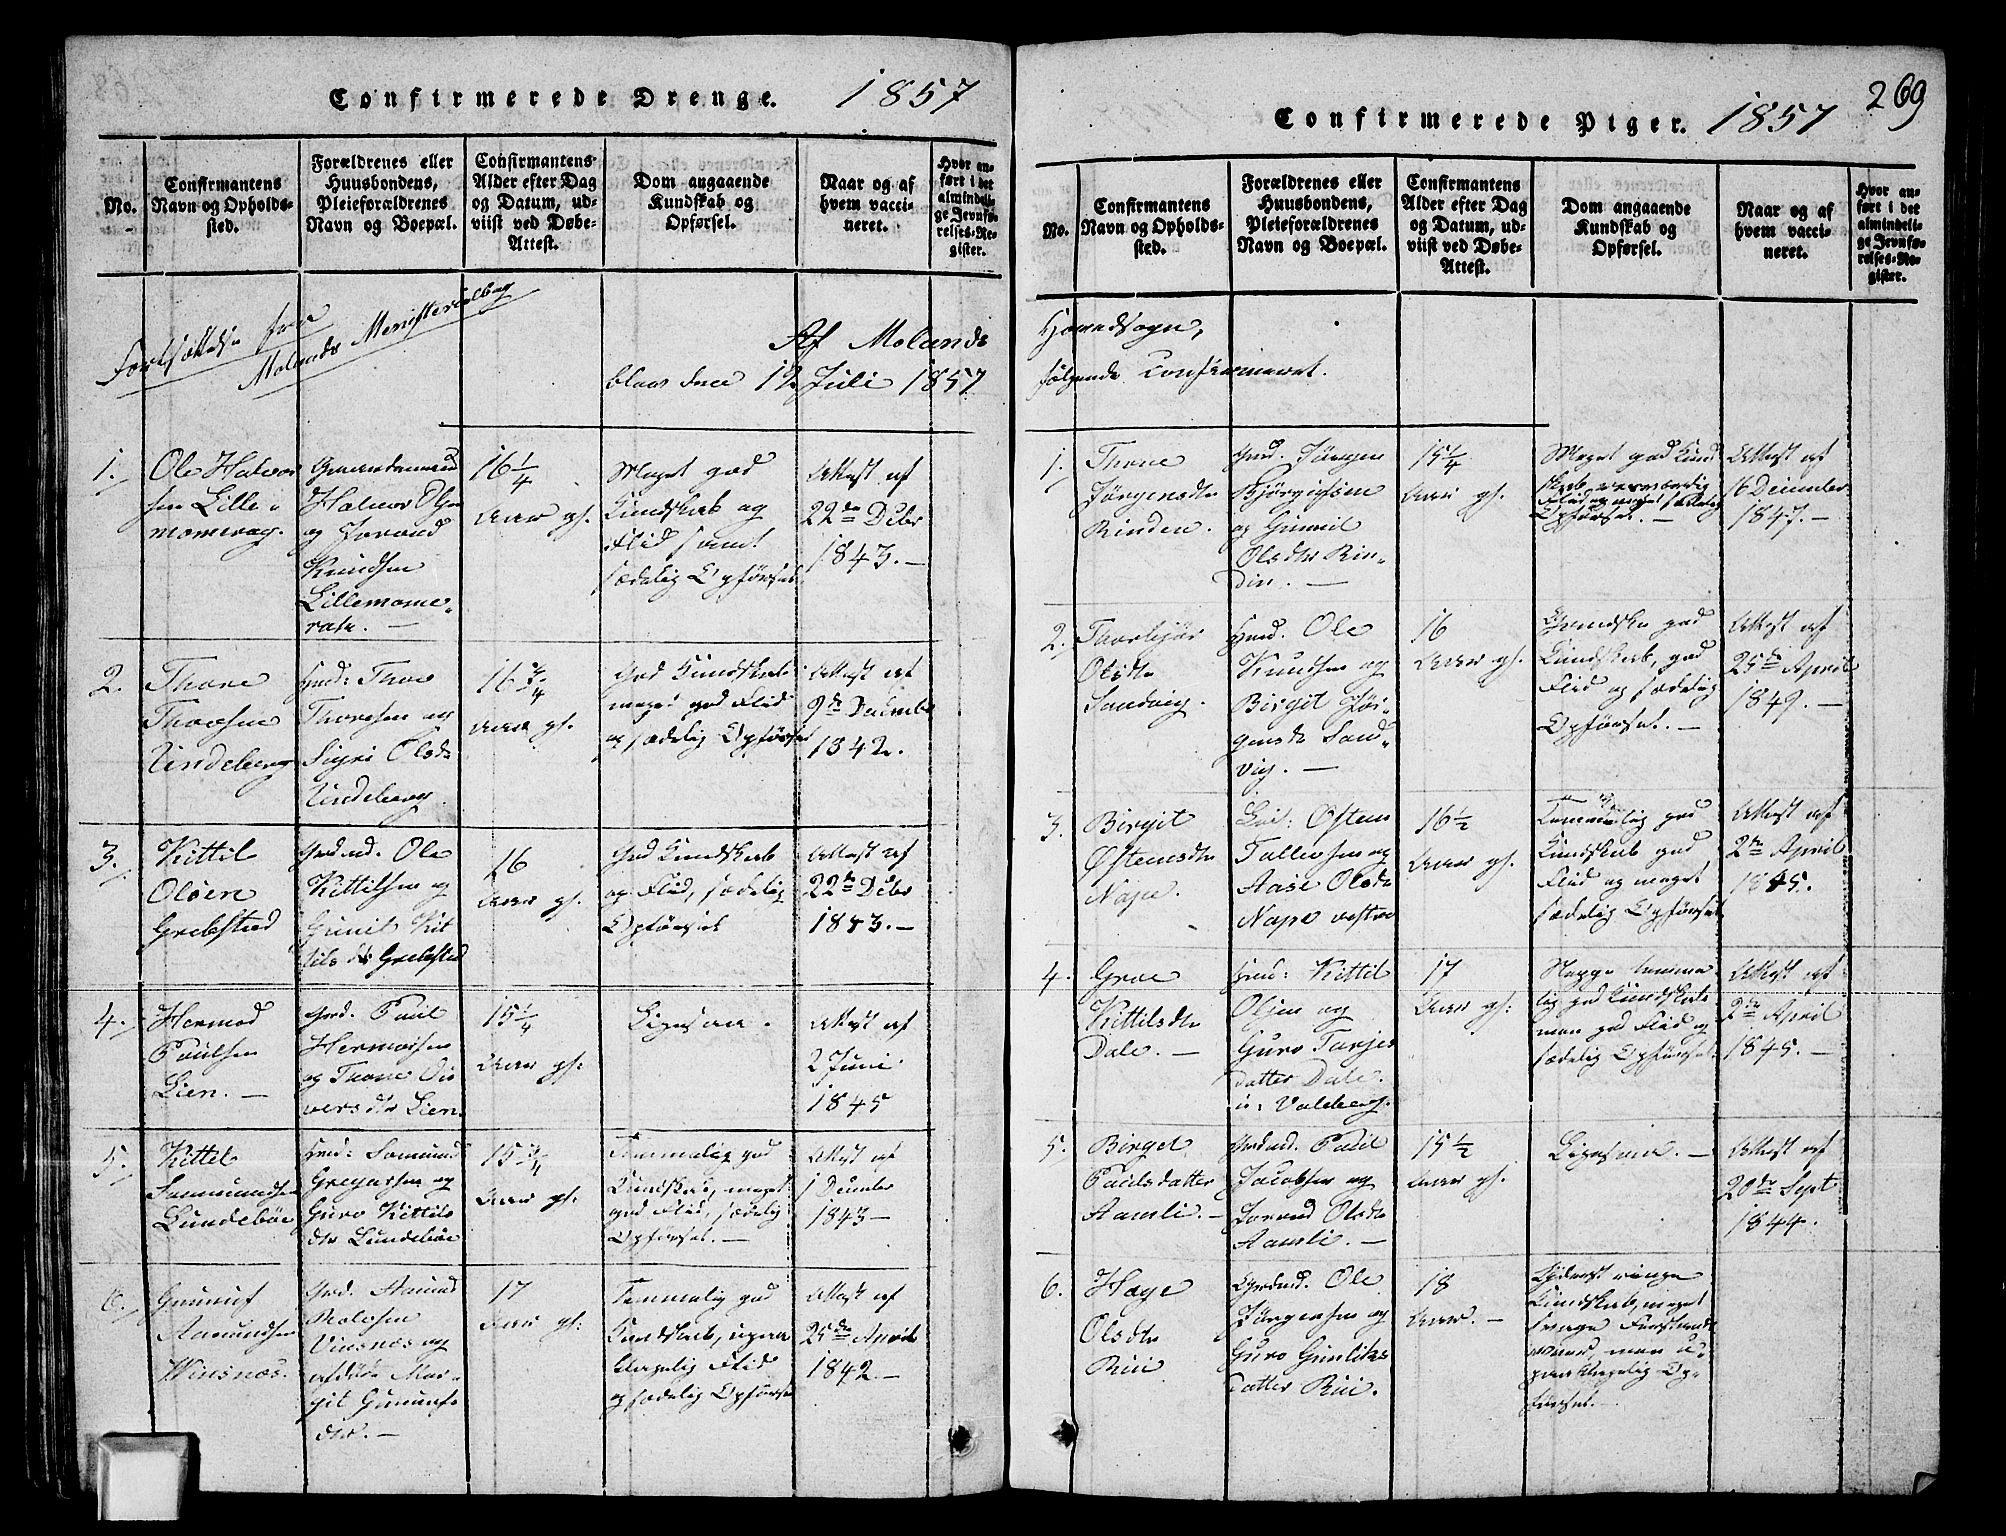 Confirmerede Drenge. 1857
No.
Confirmantens
Navn og Opholds-
sted.
Forældrenes eller
Huusbondens,
Pleieforældrenes
Navn og Boepæl.
Confirmantens
Alder efter Dag
og Datum, ud-
viist ved Døbe-
Attest.
Dom angaaende
Kundskab og
Opførsel.
Naar og af
hvem vacci-
neret.
Hvor an-
ført i det
almindeli-
ge Jevnfø-
relses-Re-
gister.
Fortsættelse fra
Molands Ministerialbog
Af Molands
blev den 12 Juli 1857
1.
Ole Halvor
sen Lille
momerag.
Halvor Olsen
og Jorand
Knudsen
Lillemome-
rak. —
16 1/4
Aar gl.
Meget god
Kundskab og
Flid samt
sædelig Opførsel
Attest af
22de Debr
1843. —
2.
Thore
Thorsen
Lindeberg
Gmd: Thor
Thoresen og
Sigri Olsdr
Lindeberg
16 3/4
Aar gl.
God Kundskab
meget god Flid
og sædelig Opførsel
Attest af
9de Decembr
1842.
3.
Kittil
Olsen
Grebstad
Grdmd. Ole
Kittilsen og
Gunil Kit
tils dr Grebstad
16
Aar gl.
God Kundskab
og Flid, sædelig
Opførsel
Attest af
22de Debr
1843. —
4.
Hermod
Poulsen
Lien. —
Grd. Poul
Hermodsen
og Thone Ei
versdr Lien
15 1/4
Aar gl:
Ligesaa.
Attest af
2 Juni
1845
5.
Kittel
Sormundsen
Lundebøe
Gmd: Sormund
Gregarsen og
Guro Kittils
dtr Lundebøe
15 3/4
Aar gl.
Temmelig god
Kundskab, meget
god Flid, sædelig
Opførsel. —
Attest af
1 Decmber
1843 —
6.
Gunuf
Aamundsen
Winsnæs.
Grd. Aamund
Rolofsen
Vinsnæs og
afdøde Mar-
git Gunufs
dtr. —
17
Aar gl:
Temmelig god
Kundskab, upaa
klagelig Flid
og sædelig Opførsel
Attest af
25de April
1842. —
269
Confirmerede Piger. 1857
No.
Confirmantens
Navn og Opholds-
sted.
Forældrenes eller
Huusbondens,
Pleieforældrenes
Navn og Boepæl.
Confirmantens
Alder efter Dag
og Datum, ud-
viist ved Døbe-
Attest.
Dom angaaende
Kundskab og
Opførsel.
Naar og af
hvem vacci-
neret.
Hvor an-
ført i det
almindeli-
ge Jevnfø-
relses-Re-
gister.
Hovedsogn,
følgende Confirmeret.
1.
Thone
Jørgensdtr
Rinden.
Gmd. Jørgen
Bjørgufsen
og Gunvil
Olsdtr Rin-
den. —
15 1/4
Aar gl.
Meget god Kund
skab
Flid og meget sædelig
Opførsel. —
Attest af
16 Decmber
1847. —
2.
Thorbjør
Olsdtr
Sandvig.
Gmd. Ole
Knudsen og
Birgit Jør-
gensdr Sand-
vig. —
16
Aar gl.
Ganske god
Kundskab, god
Flid og sædelig
Opførsel. —
Attest af
25de April
1842. —
3.
Birgit
Østensdtr
Nape.
Lei: Østen
Tallevsen og
Aase Olsdr
Nape vestre
16 1/2
Aar gl.
Temmelig god
Kundskab god
Flid og meget
sædelig Opførsel
Attest af
2de April
1845.
4.
Groe
Kittilsdtr
Dale. —
Gmd: Kittil
Olsen og
Guro Tarjes
datter Dale
u: Valeberg.
17
Aar gl:
Neppe temme
lig god Kundskab
men god Flid og
sædelig Opførsel.
Attest af
2de April
1845. —
5.
Birget
Poulsdatter
Aamli. —
Grdmd. Poul
Jacobsen og
Jorand Olsdtr
Aamli. —
15 1/2
Aar gl.
Ligesaa. —
Attest af
20de Sept
1844.
6.
Hage
Olsdtr
Rui
Grdmd. Ole
Jørgensen og
Guro Gunliks
datter Rui.
18
Aar. —
Yderst ringe
Kundskab, meget
svage Forstands
men u-
paaklagelig Op-
førsel. —